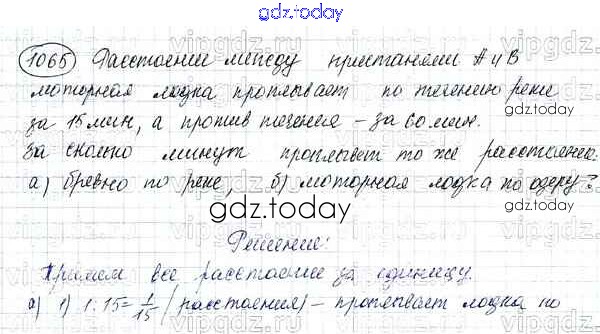 gdz.today
1065 Расстояние между пристанями А и В
моторная лодка проплывает по течению реки
за 15 мин, а против течения – за 60 мин.
gdz.today
За сколько минут проплывет то же расстояние:
а) бревно по реке, б) моторная лодка по озеру?
gdz.today
Решение:
Примем все расстояние за единицу.
а) 1) 1:15=1/15 (расстояния) – проплывает лодка по
gdz.today